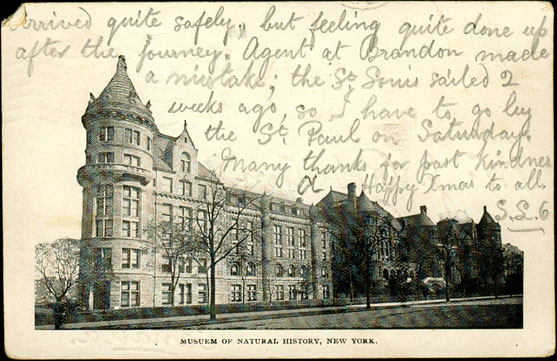 Arrived quite safely, but feeling quite done up
after the journey. Agent at Brandon made
a mistake; the St. Louis sailed 2
weeks ago, so I have to go by
the St. Paul on Saturday.
Many thanks for past kindness
& Happy Xmas to all.
S.L.G
MUSUEM OF NATURAL HISTORY, NEW YORK.